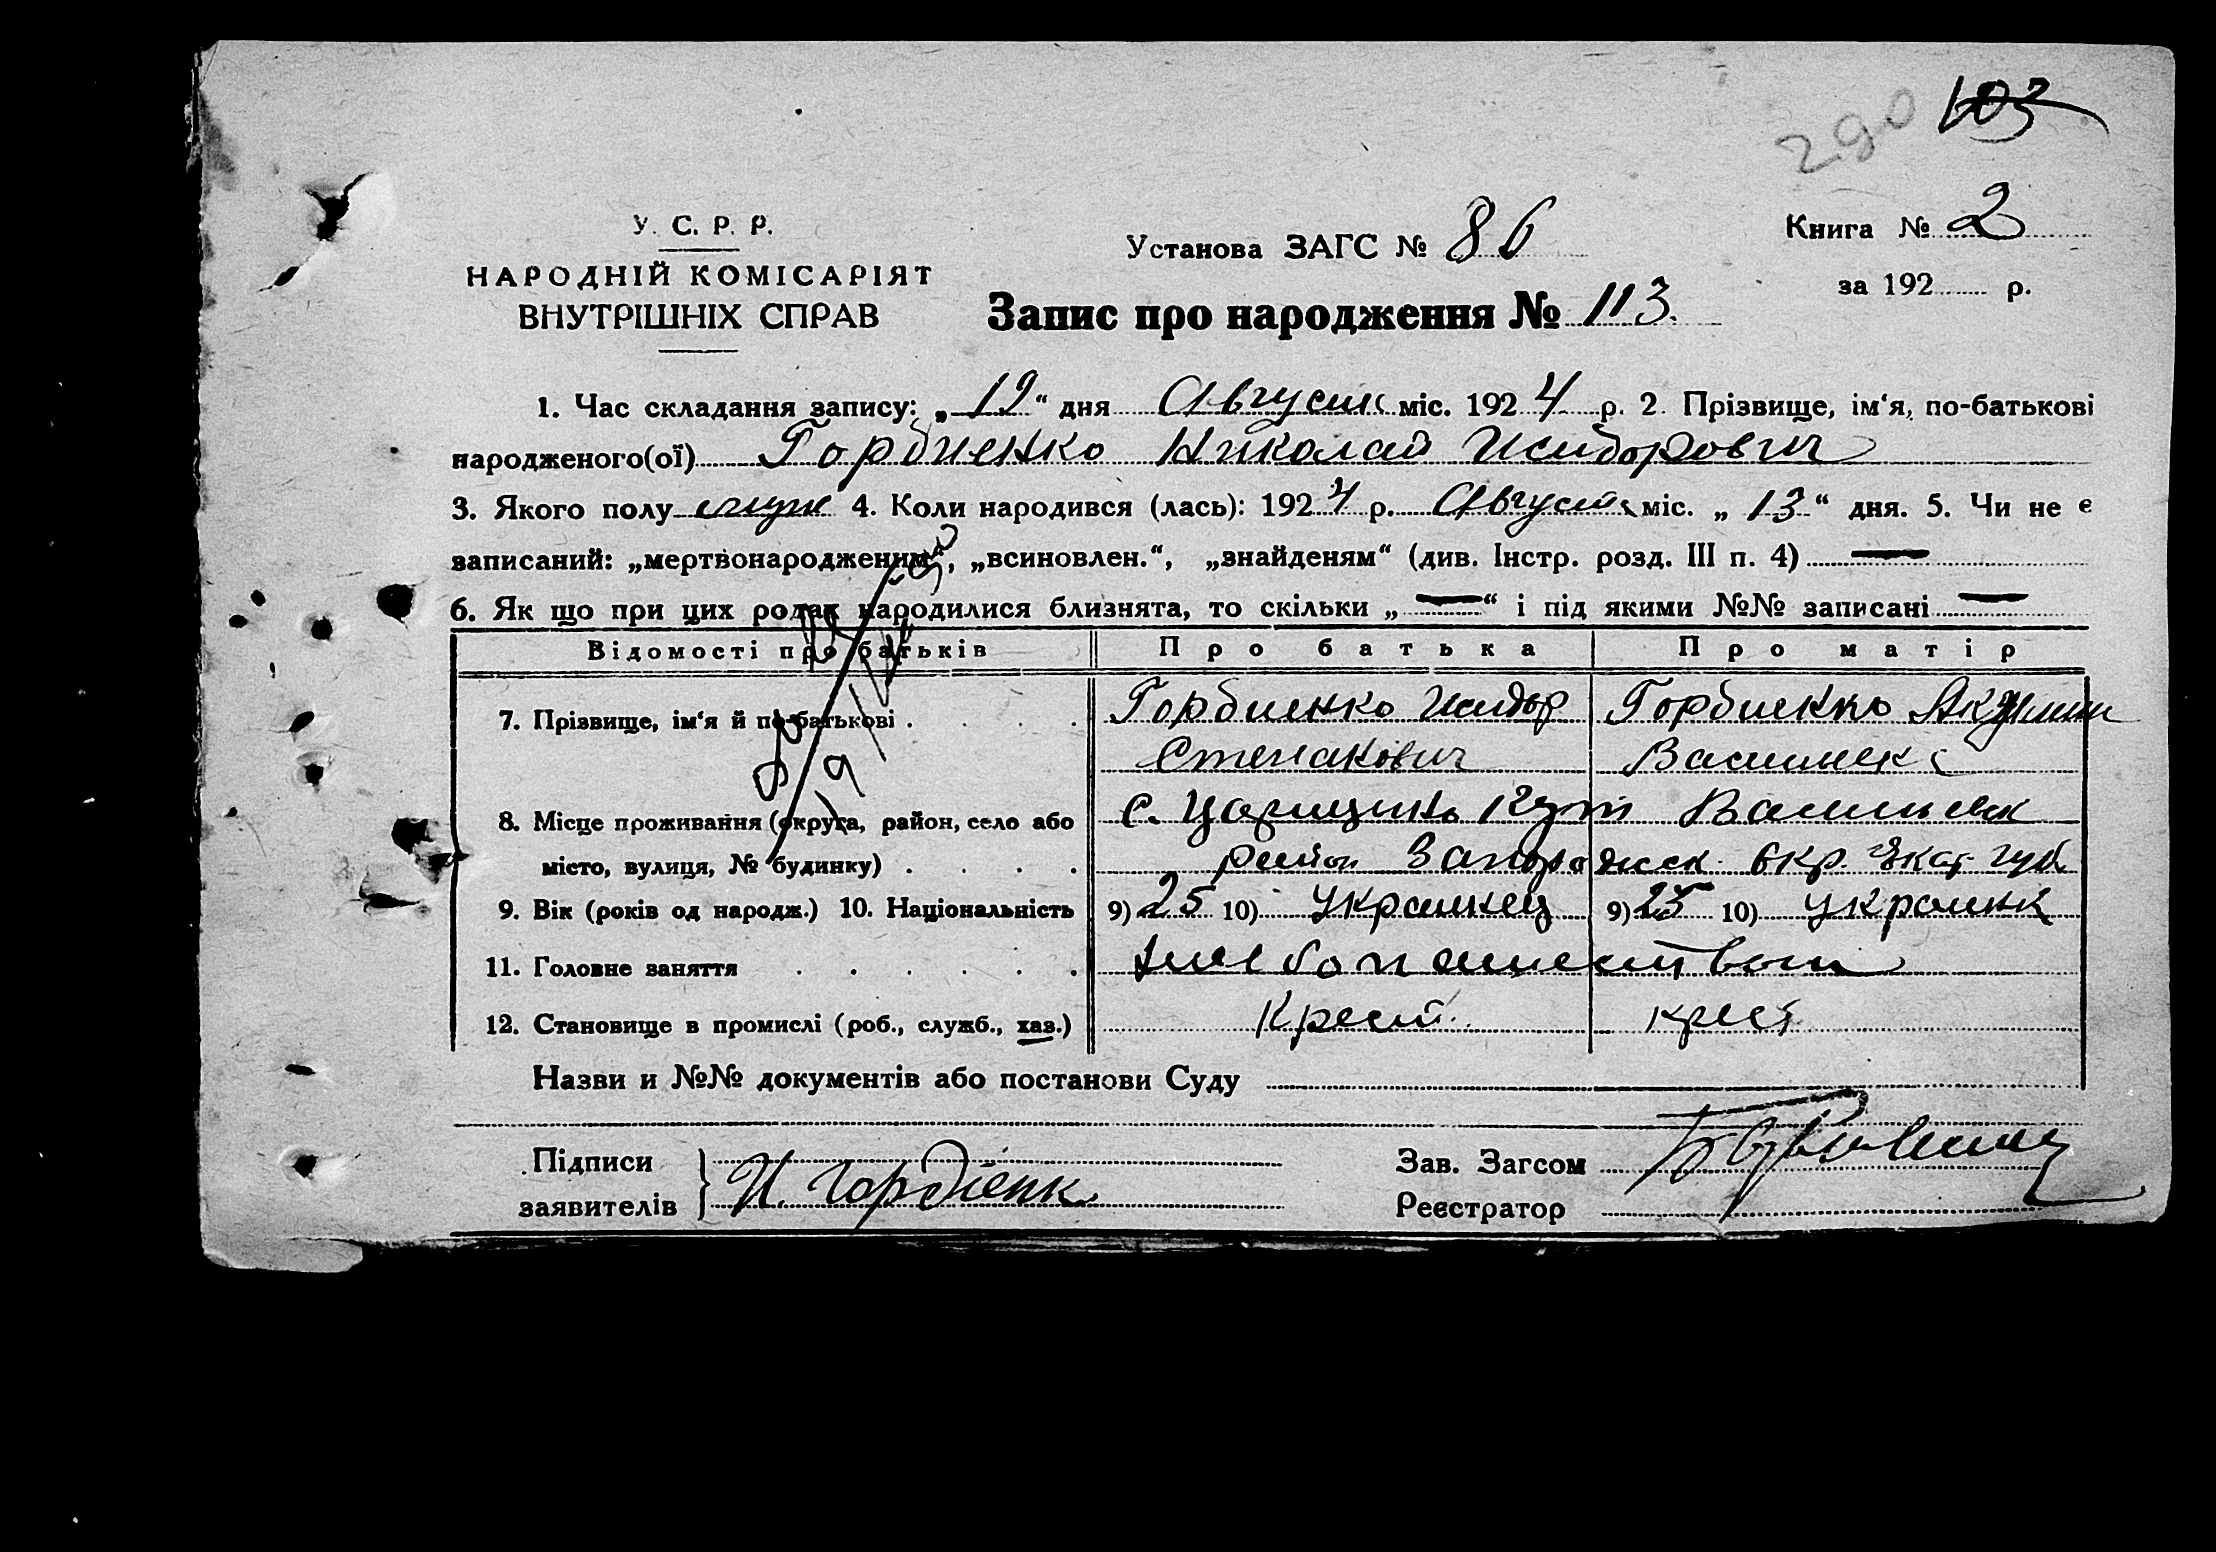 290 103
У. С. Р. Р.
НАРОДНІЙ КОМІСАРІЯТ
ВНУТРІШНІХ СПРАВ
Установа ЗАГС № 86
Книга № 2
за 192 р.
Запис про народження № 113.
1. Час складання запису: „19“ дня Август міс. 1924 р. 2. Прізвище, ім‘я, по-батькові
народженого(ої) Гордиенко Николай Исидорович
3. Якого полу муж 4. Коли народився (лась): 1924 р. Август міс. „13“ дня. 5. Чи не є
записаний: „мертвонародженим“, „всиновлен.“, „знайденям“ (див. Інстр. розд. III п. 4) —
6. Як що при цих родах народилися близнята, то скільки „—“ і під якими №№ записані —
Відомості про батьків Про батька Про матір
7. Прізвище, ім‘я й по-батькові . . . . Гордиенко Исидор Гордиенко Акулина
Степанович Васильев
8. Місце проживання (округа, район, село або с. Царицын Кут Васильевск
місто, вулиця, № будинку) . . . . район Запорожск. окр. Екат. губ
9. Вік (років од народж.) 10. Національність 9) 25 10) Украинец 9) 25 10) Украинк
11. Головне заняття . . . . . . хлебопашеством
12. Становище в промислі (роб., служб., хаз.) Крест. крест
Назви и №№ документів або постанови Суду
Підписи
заявителів И. Гордіенк
Зав. Загсом
Реєстратор